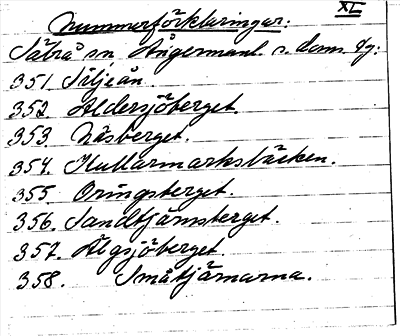 XI
Nummerförklaringar.
Säbrå sn, Ångermanl. s. doms. dg:
351. Säljeån.
352. Aldersjöberget.
353. Näsberget.
354. Kullarmarksbäcken.
355. Öringsberget.
356. Sandtjärnsberget.
357. Älgsjöberget.
358. Småtjärnarna.